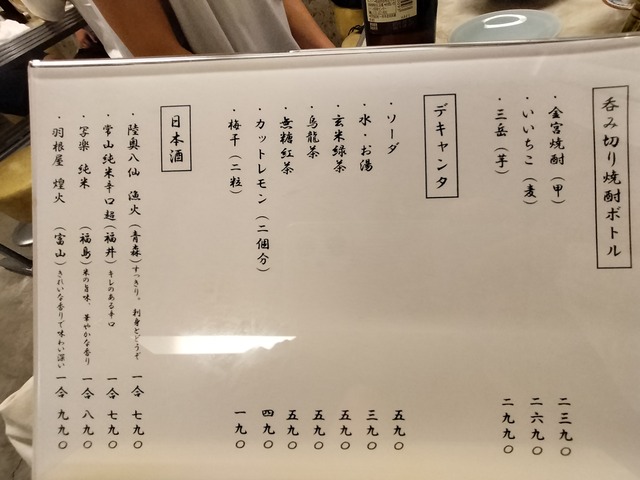 呑み切り焼酎ボトル
・金宮焼酎（甲） 二三九〇
・いいちこ（麦） 二六九〇
・三岳（芋） 二九九〇
デキャンタ
・ソーダ 五九〇
・水・お湯 三九〇
・玄米緑茶 五九〇
・烏龍茶 五九〇
・無糖紅茶 五九〇
・カットレモン（二個分） 四九〇
・梅干（二粒） 一九〇
日本酒
・陸奥八仙 漁火（青森）すっきり。刺身とどうぞ 一合 七九〇
・常山純米辛口超（福井）キレのある辛口 一合 七九〇
・写楽 純米（福島）米の旨味、華やかな香り 一合 八九〇
・羽根屋 煌火（富山）きれいな香りで味わい深い 一合 九九〇